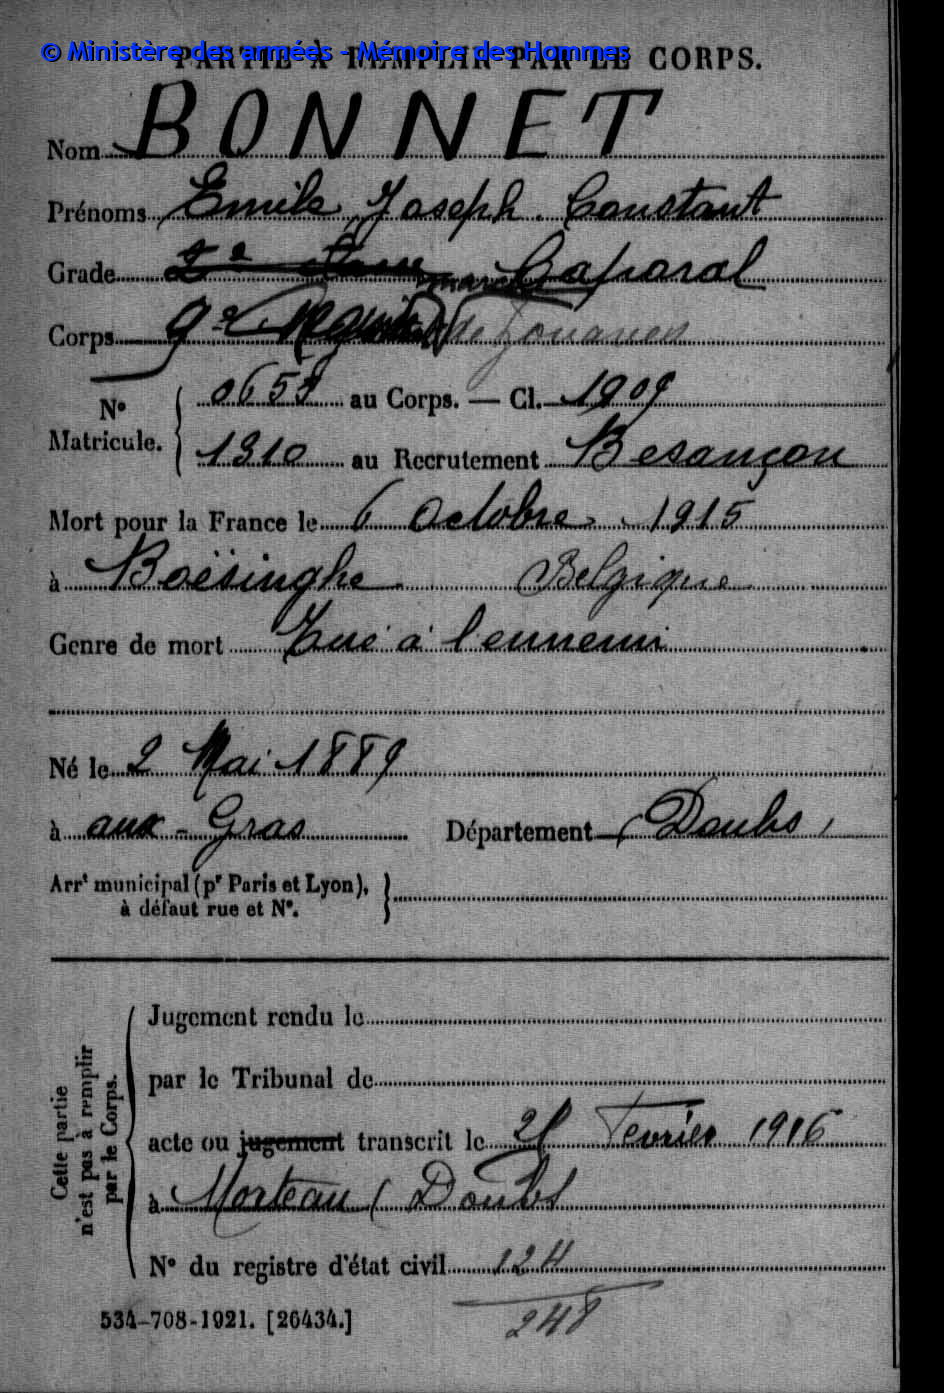 © Ministère des armées - Mémoire des Hommes
PARTIE À REMPLIR PAR LE CORPS.
Nom BONNET
Prénoms Emile Joseph Constant
Grade 2e Caporal
Corps 9e de Zouaves
N° Matricule. 0658 au Corps. — Cl. 1909
1310 au Recrutement Besançon
Mort pour la France le 6 Octobre 1915
à Boësinghe Belgique
Genre de mort Tué à l'ennemi
Né le 2 Mai 1889
à aux-Gras Département (Doubs)
Arrt municipal (pr Paris et Lyon),
à défaut rue et N°.
Cette partie
n'est pas à remplir
par le Corps.
Jugement rendu le
par le Tribunal de
acte ou jugement transcrit le Fevrier 1916
à Morteau (Doubs
N° du registre d'état civil 124
248
534-708-1921. [26434.]